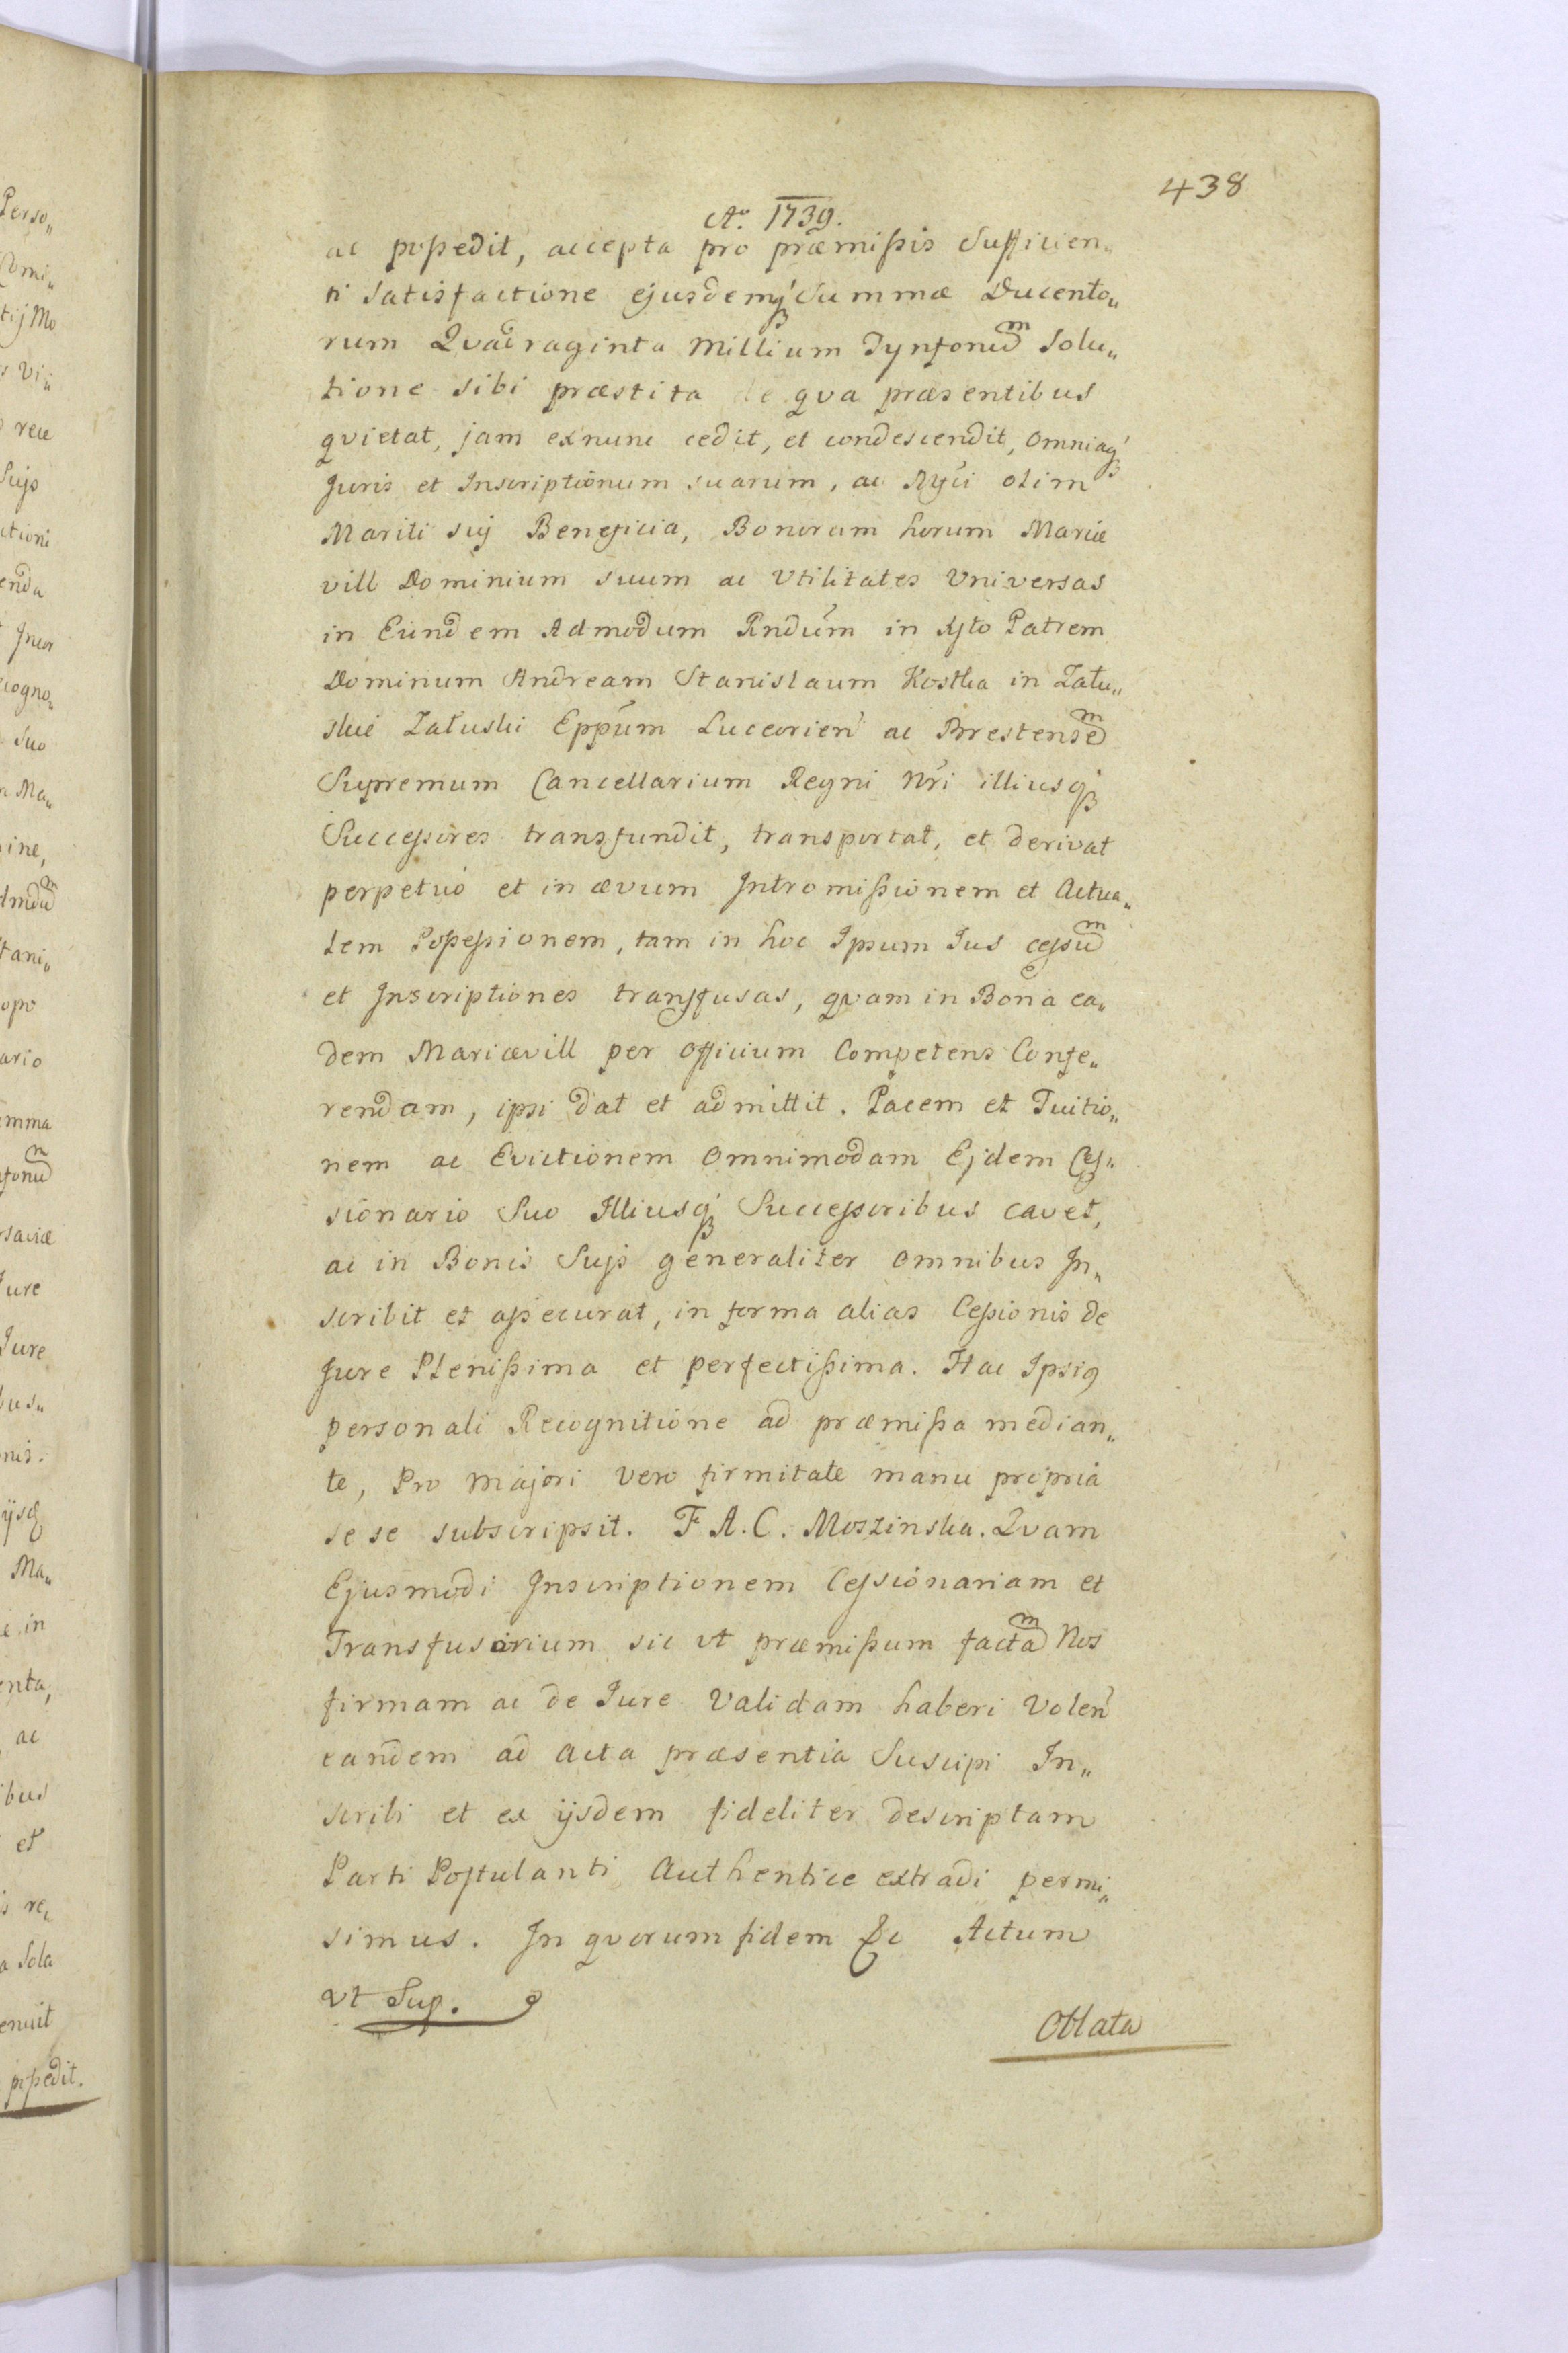 438
Aº 1739.
ac poßedit, accepta pro præmißis Sufficien„
ti Satisfactione ejusdemq́ Summæ Ducento„
rum Quadraginta Millium Tynfonum Solu„
tione sibi præstita de qva præsentibus
qvietat, jam exnunc cedit, et condescendit, omniaq́
Juris et Inscriptionum suarum, ac Mg̃ci olim
Mariti sui Beneficia, Bonorum horum Mariæ
vill Dominium suum ac Utilitates Universas
in Eundem Admodum Rndũm in Xsto Patrem
Dominum Andream Stanislaum Kostka in Zału„
skie Załuski Epp̃um Luceorien̄ ac Brestensem
Supremum Cancellarium Regni Nr̃i illiusq́
Succeſsores transfundit, transportat, et derivat
perpetuò et in ævum Intromißionem et Actua„
lem Poſseſsionem, tam in hoc Ipsum Jus ceſsum
et Inscriptiones transfusas, qvam in Bona ea„
dem Mariævill per Officium Competens Confe„
rendam, ipsi dat et admittit. Pacem et Tuitio„
nem ac Evictionem Omnimodam Ejdem Ceſ„
sionario Suo Illiusq́ Succeſsoribus cavet,
ac in Bonis Sujs generaliter omnibus In„
scribit et aßecurat, in forma alias Ceßionis de
Jure Plenißima et perfectißima. Hac Ipsig
personali Recognitione ad præmißa median„
te, Pro Majori vero firmitate manu propria
se se subscripsit. F A. C. Moszinska. Qvam
Ejusmodi Inscriptionem Ceſsionariam et
Transfusorium sic ut præmißum factam Nos
firmam ac de Jure validam haberi volen̄
eandem ad Acta præsentia Suscipi In„
scribi et ex ijsdem fideliter descriptam
Parti Poſtulanti Authentice extradi permi„
simus. In qvorum fidem &c Actum
ut Sup.
Oblata